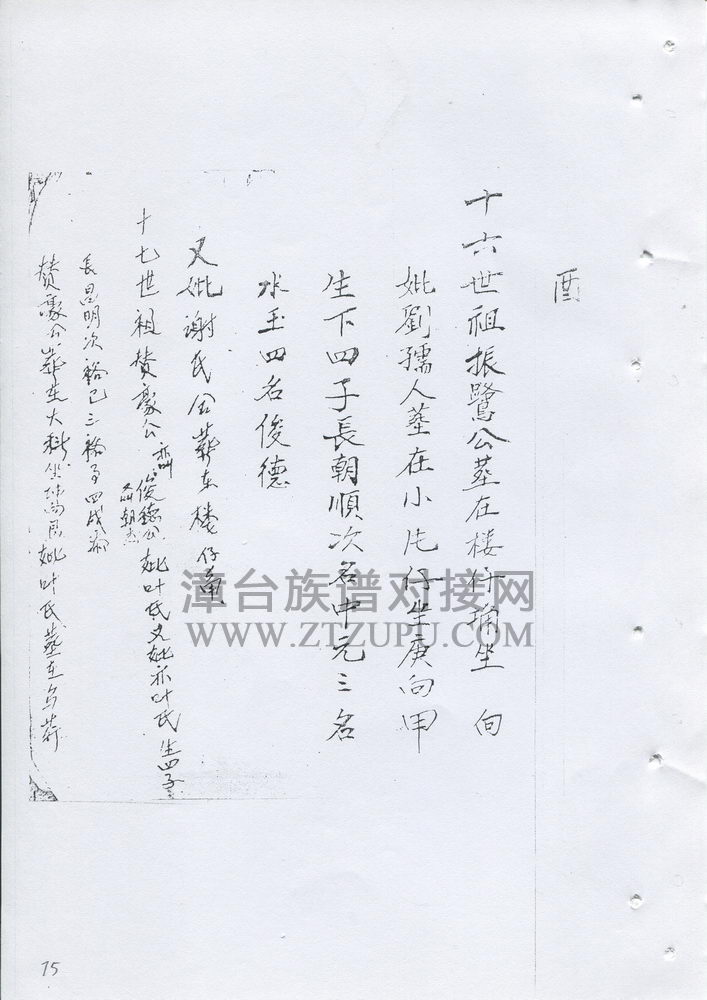 酉
十六世祖振鷺公塟在楼仔埔坐 向
妣劉孺人塟在小庑仔坐庚向甲
生下四子長朝順次名中元三名
水玉四名俊德
又妣谢氏 葬在楼仔
十七世祖賛豪公 俊德公 朝 妣叶氏又妣亦叶氏生四子
長昌明次裕己三裕 四成
賛豪公葬在大 坐 妣叶氏塟在乌
漳台族谱对接网
WWW.ZTZUPU.COM
75